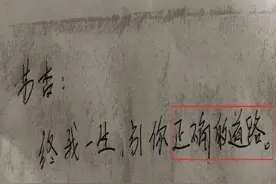 终我一生，引你正确的道路。